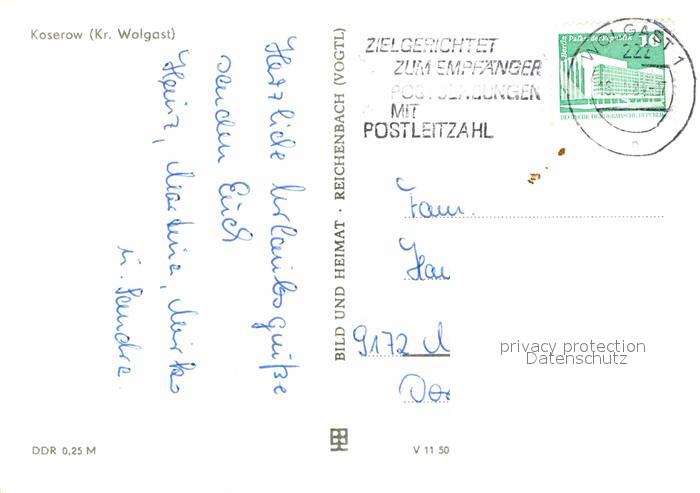 Koserow (Kr. Wolgast)
Herzliche Urlaubsgrüße
senden Euch
Heinz, Martina, Mirko
u. Sandra.
DDR 0,25 M
BILD UND HEIMAT · REICHENBACH (VOGTL)
V 11 50
ZIELGERICHTET
ZUM EMPFÄNGER
POSTSENDUNGEN
MIT
POSTLEITZAHL
Berlin Palast der Republik 10
DEUTSCHE DEMOKRATISCHE REPUBLIK
WOLGAST 1
222
Fam.
9172
privacy protection
Datenschutz